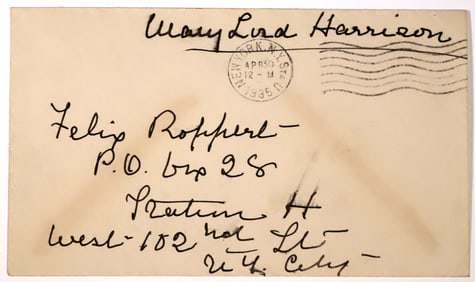 Mary Lord Harrison
NEW YORK, N.Y. STA. U
APR 30
12 - M
1935
Felix Roppert
P.O. box 28
Station H
West 102nd St
N.Y. City